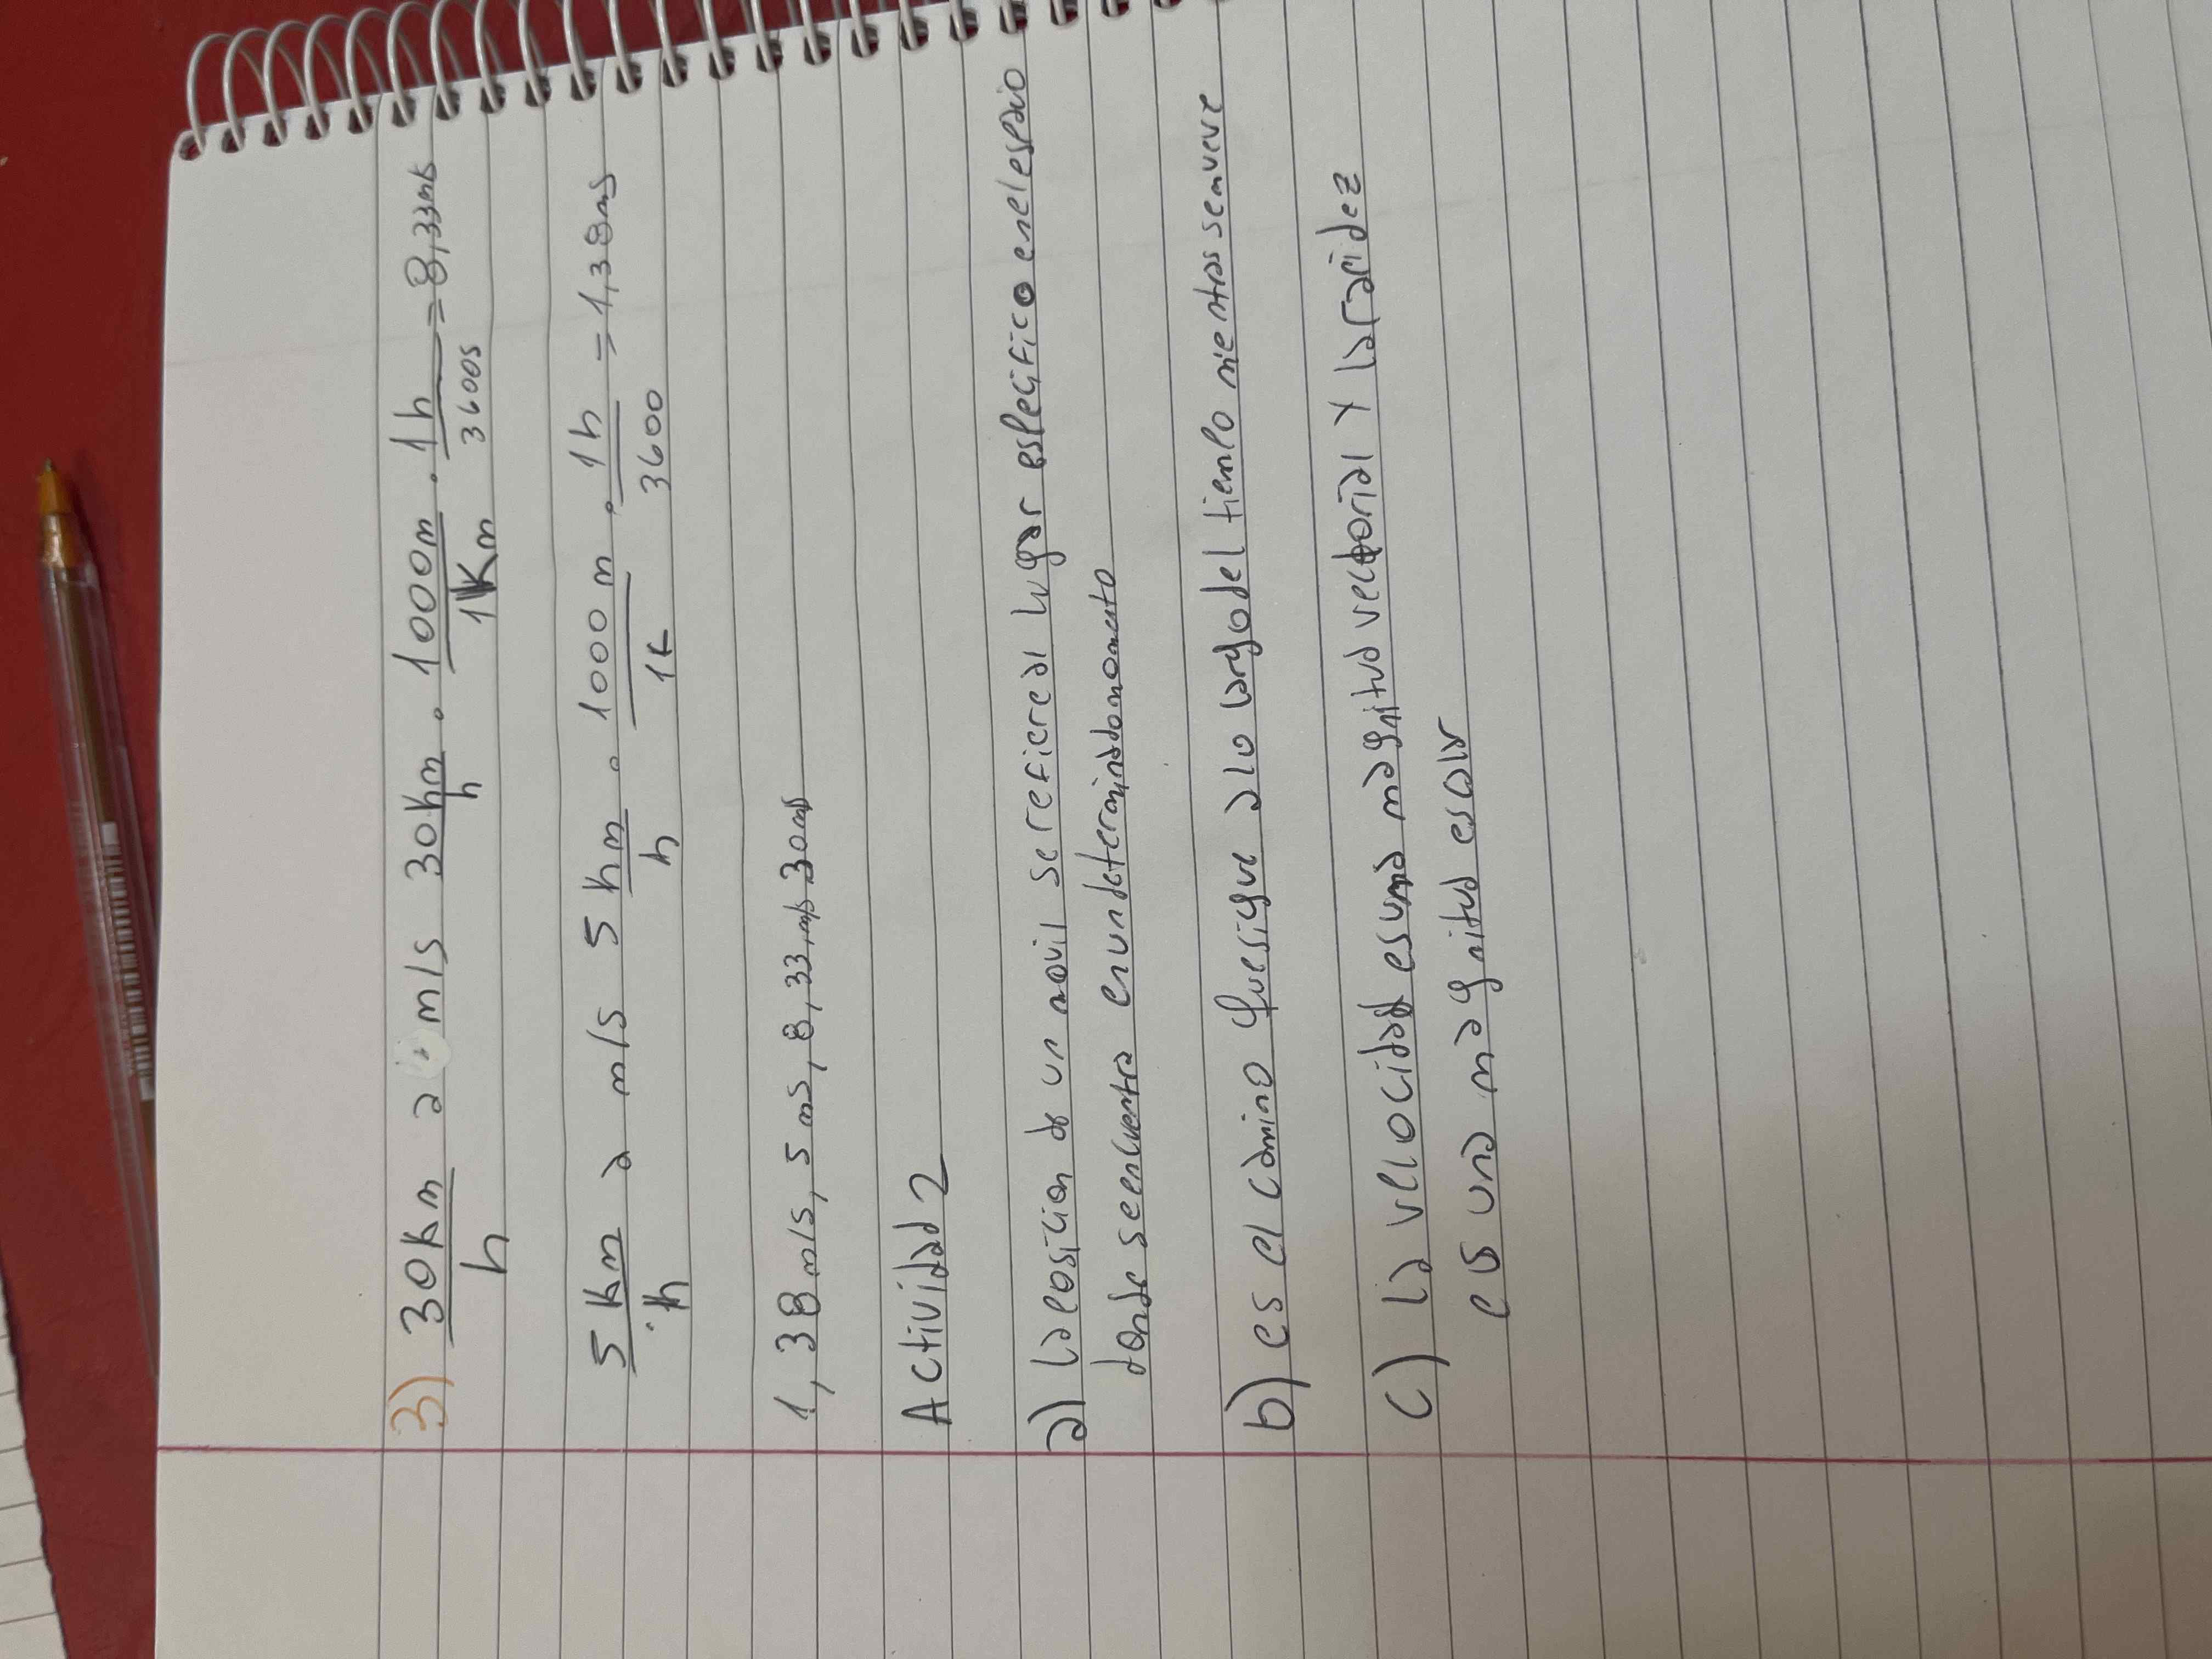 3) 30km/h a m/s 30km/h . 1000m/1Km . 1h/3600s = 8,33m/s
5 km/h a m/s 5 km/h . 1000 m/1k . 1h/3600 = 1,38ms
1,38 m/s, 5 ms, 8,33 m/s 30ms
Actividad 2
a) la posicion de un movil se refiere al lugar espesifico en el espacio
donde se encuentra en un determinado momento
b) es el camino que sigue a lo largo del tiempo mientras se mueve
c) la velocidad es una magnitud vectorial y la rapidez
es una magnitud escalar